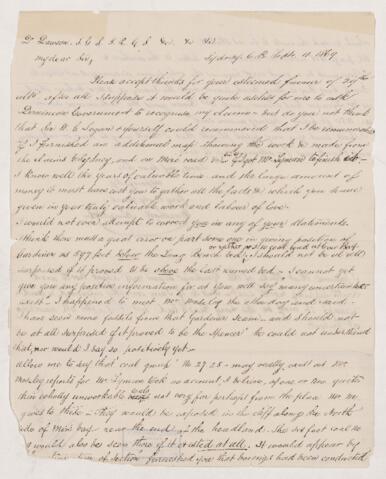 Dr Dawson. L L D F. R. G S &c. &c &c.
My dear Sir, Sydney, C. B. Sept. 11. 1869
Please accept thanks for your esteemed favour of 29th
ult. after all I suppose it would be quite useless for me to ask
Dominion Government to recognize my claim. but do you not think
that Sir W. E Logan & yourself could recommend that I be remunerated
if I furnished an additional map showing the work & made from
the and on Mira road Mr Lyman to finish
I know well the years of valuable time and the large amount of
money it must have cost you to gather all the facts & which you have
given in your truly valuable work and labour of love.
I would not even attempt to correct you in any of your statements.
I think there was a great error on part some one in giving position of
Gardiner as 397 feet below the Long Beach bed. I should not be at all
surprised if it proved to be above the last named bed. I cannot get
give you any positive information for as you will say many uncertainties
exist. I happened to meet Mr Moseley the other day and said.
I have seen some fossils from that Gardiner Seam. and should not
be at all surprised if it proved to be the Spencer. He could not understand
that, nor would I say so, positively yet.
allow me to say that "coal group" No 27. 28 - may really exist as Mr
Moseley reports for Mr Lyman took no account I believe, of one or two quite
thin totally unworkable beds not very far perhaps from the place he
gives to these - They would be exposed in the cliff along the North
side of Mira bay near the end of the headland. The six foot coal no
would also be seen there if it existed at all. It would appear by
of Section furnished you that borings had been conducted